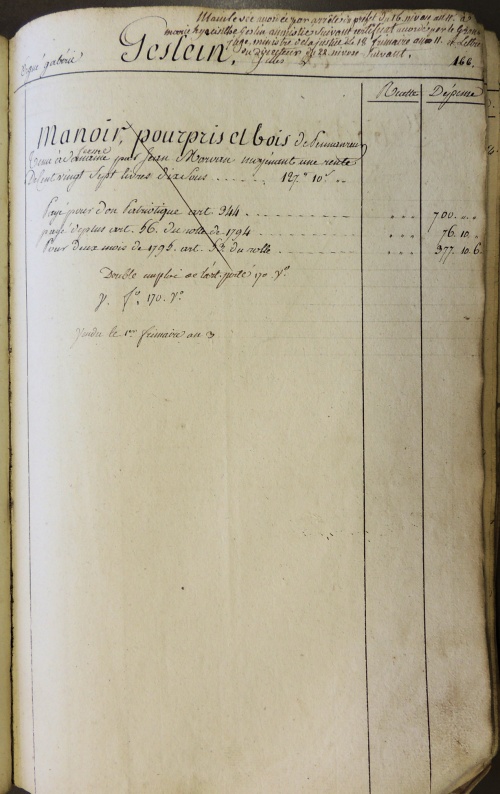 Mainlevée par arrêté du préfet du 16 nivose an 11. a
marie hyacinthe Geslin amnistiée suivant certificat par le Grand
juge ministre de la justice le 18 frimaire an 11. et Lettre
du Directeur du 22 nivose suivant.
Ergué gabéric
Geslein,
Gilles
166.
Recette
Dépense
Manoir, pourpris et bois de
ferme
Tenu à domaine par Jean Morvan moyenant une rente
De Cent vingt Sept livres dix Sous 127.# 10.s
Payé pour don Patriotique art. 244 700. " "
payé de plus art. 56. du rolle de 1794 76. 10. "
Pour deux mois de 1795. art. du rolle 377. 10. 6.
Double emploi de l'art. porté 170. V.o
V. f.o 170. V.o
Vendu le 1.er frimaire an 3